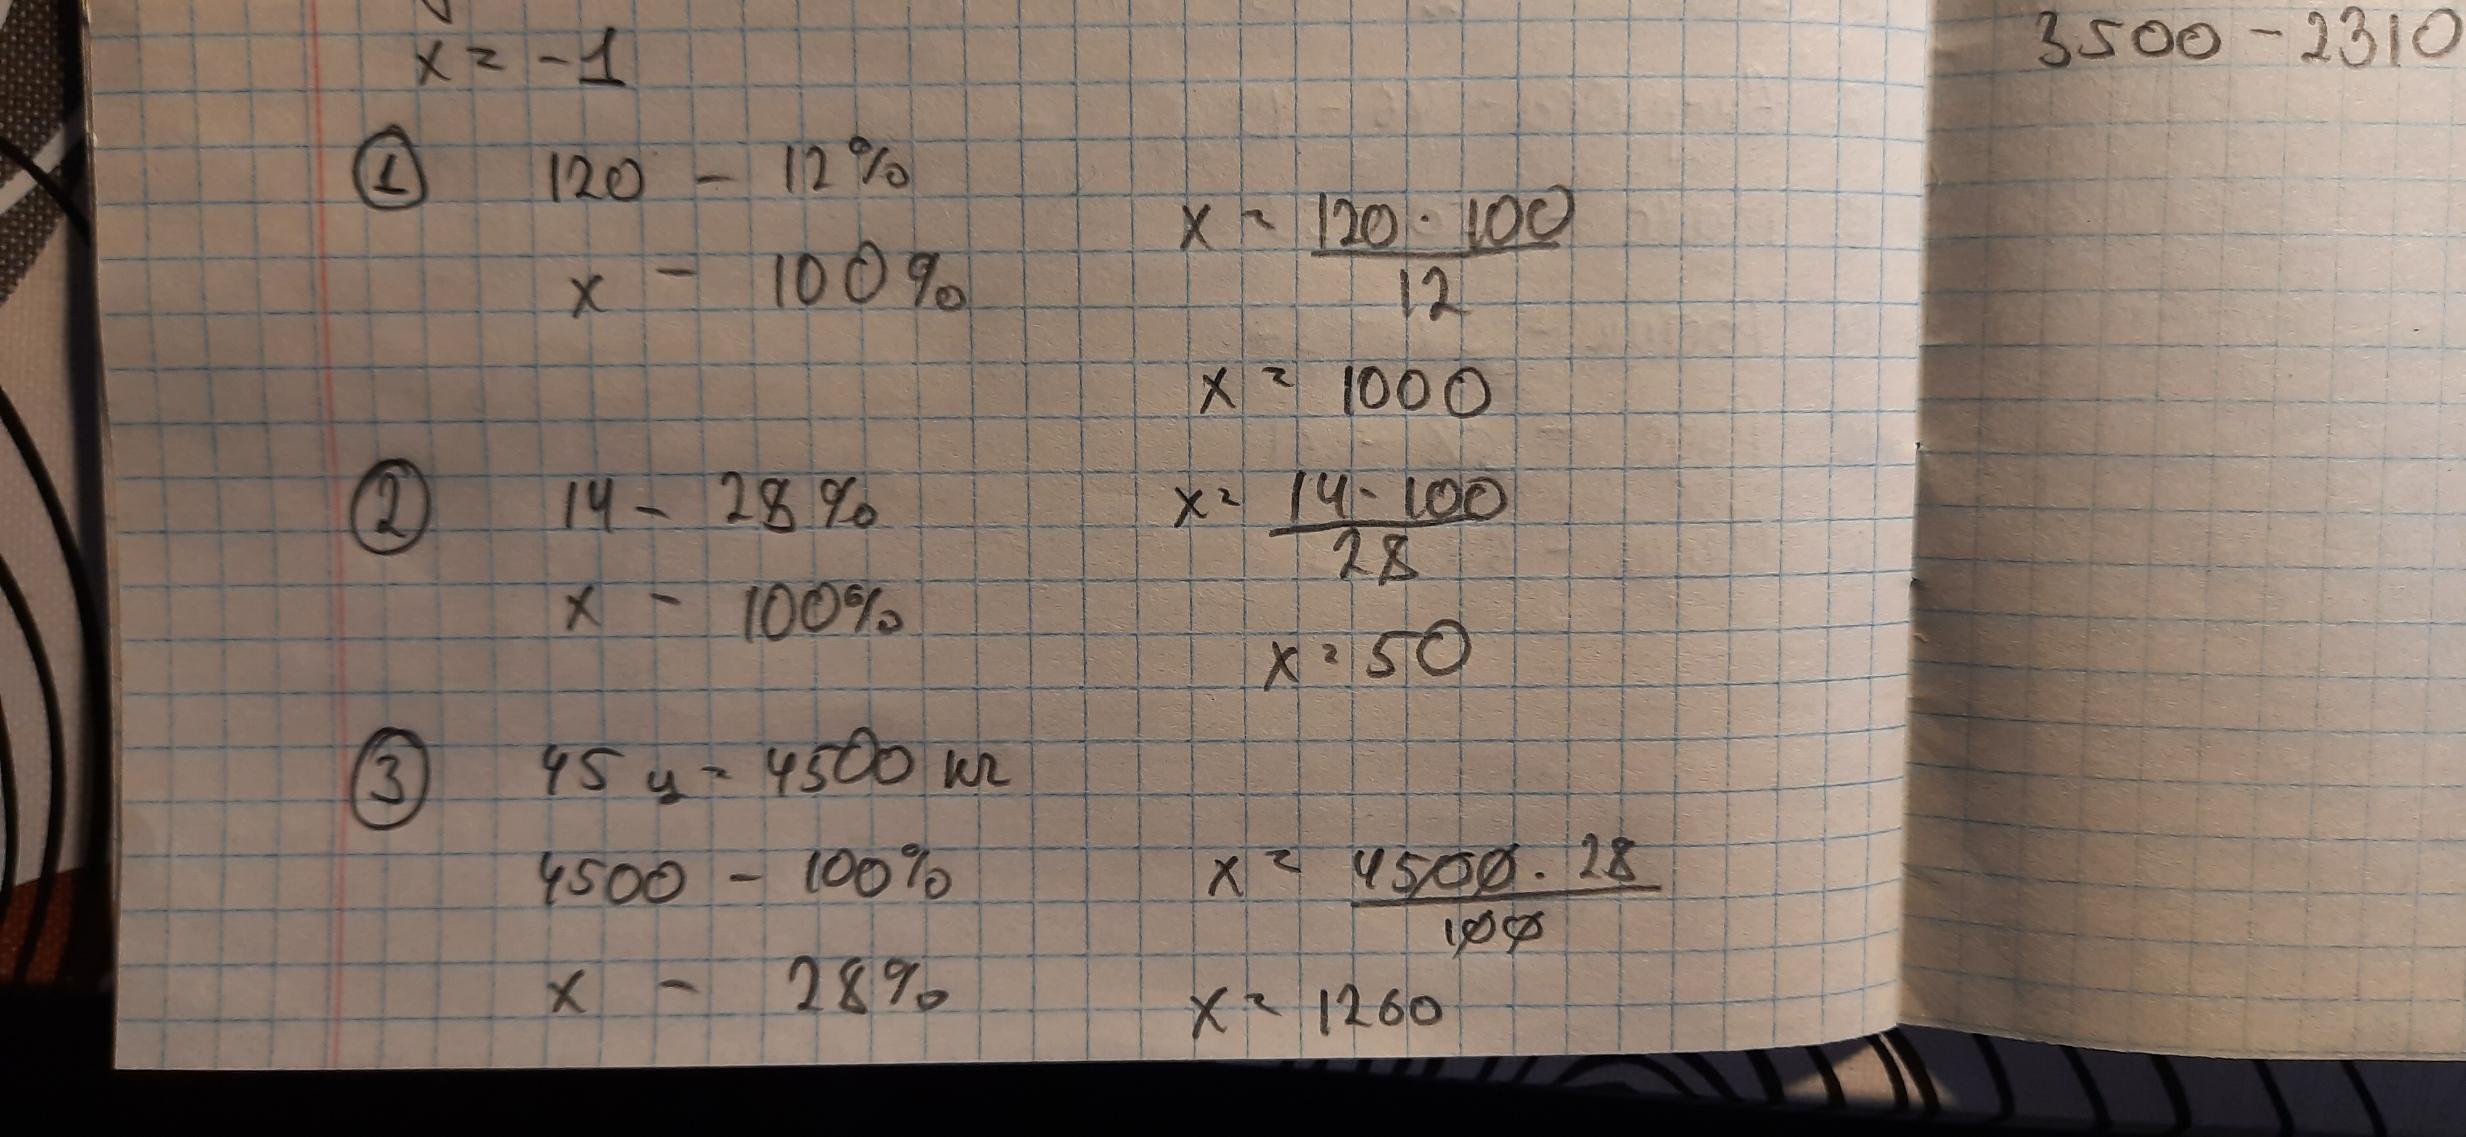 x = -1
① 120 - 12%
x - 100%
x = 120 · 100 / 12
x = 1000
② 14 - 28%
x - 100%
x = 14 · 100 / 28
x = 50
③ 45 ц = 4500 кг
4500 - 100%
x - 28%
x = 4500 · 28 / 100
x = 1260
3500 - 2310